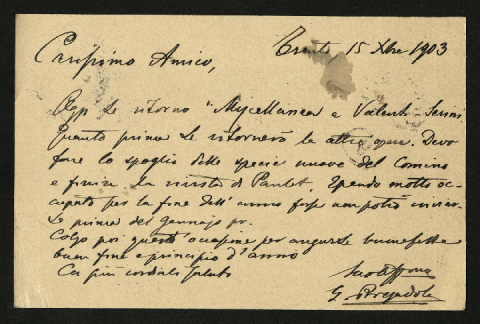 Carissimo Amico, Trento, 15 Xbre 1903
Oggi Le ritorno "Miscellanea e Valenti Serini
Quanto prima Le ritornerò le altre opere. Devo
fare lo spoglio delle specie nuove del Comino
e finire la rivista di Paulet. Essendo molto oc-
cupato per la fine dell'anno forse non potrò inviar-
Le prima del Gennajo pr.
Colgo poi quest'occasione per augurarLe buone feste
buon fine e principio d'anno
Coi più cordiali saluti
G Bresadola